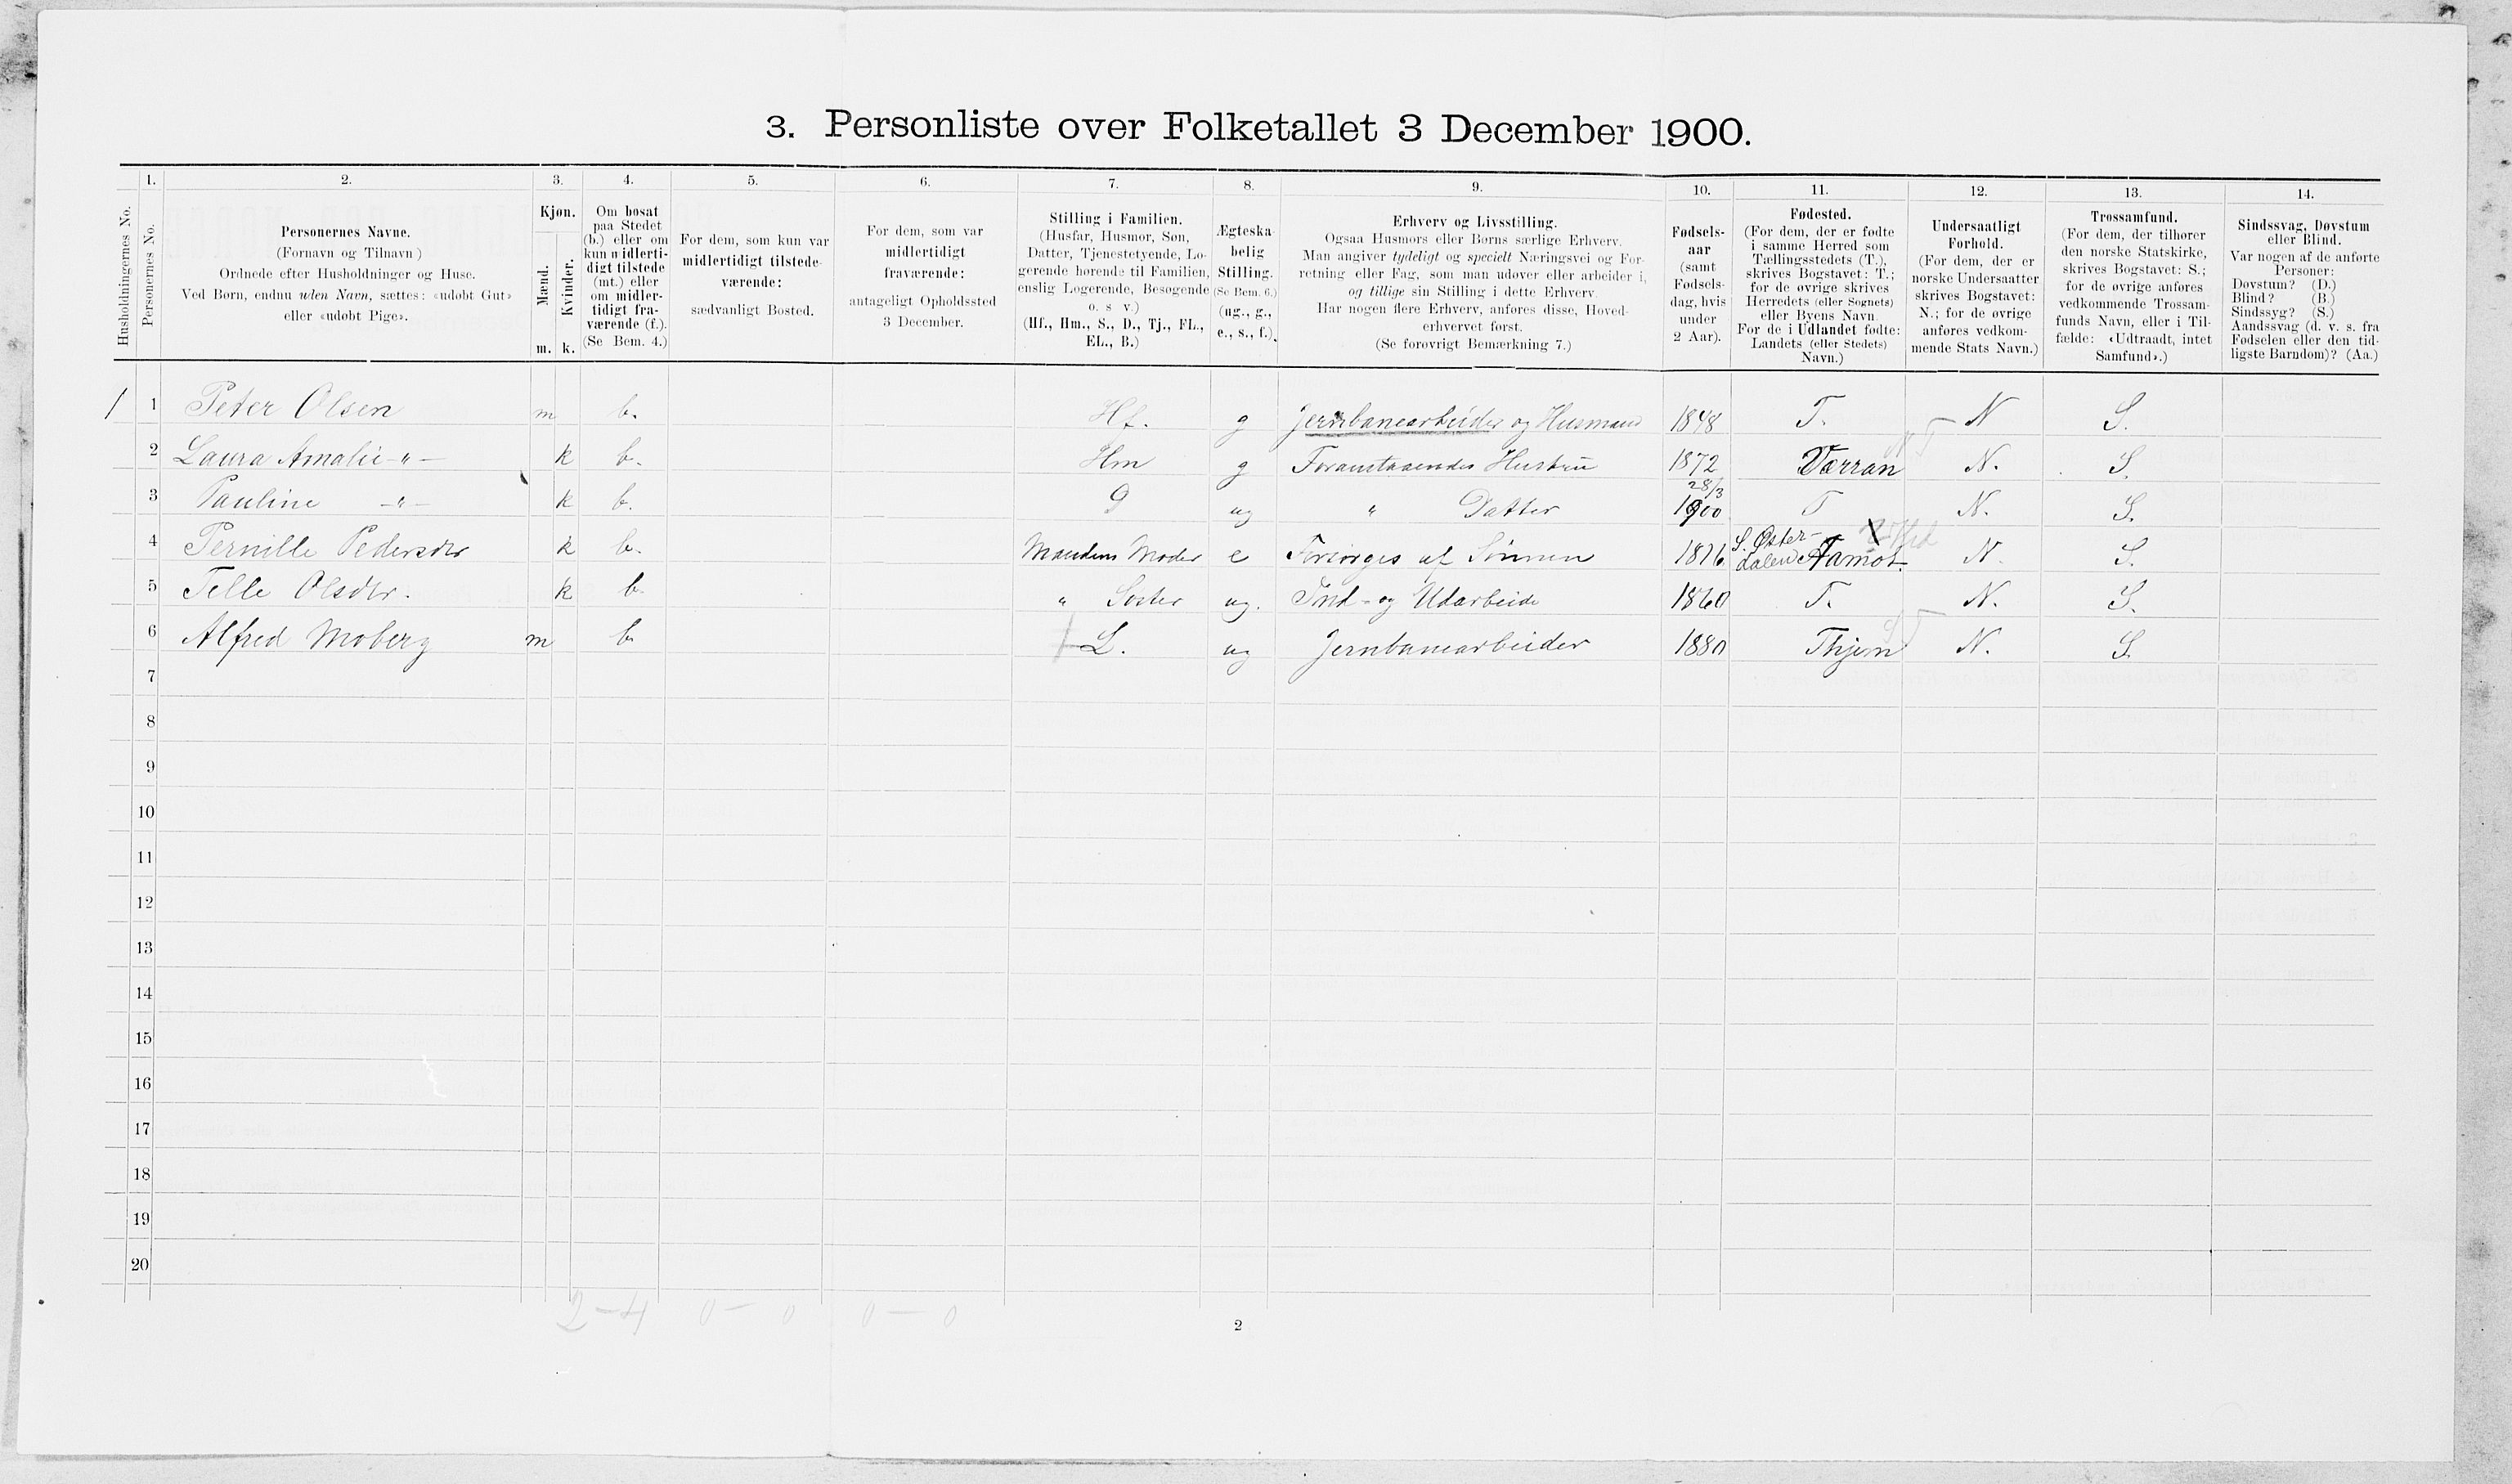 3. Personliste over Folketallet 3 December 1900.
1. 2. 3. 4. 5. 6. 7. 8. 9. 10. 11. 12. 13. 14.
Husholdningernes No.
Personernes No.
Personernes Navne.
(Fornavn og Tilnavn)
Ordnede efter Husholdninger og Huse.
Ved Børn, endnu uden Navn, sættes: «udøbt Gut»
eller «udøbt Pige».
Kjøn.
Mænd.
Kvinder.
m. k.
Om bosat
paa Stedet
(b.) eller om
kun midlerti-
digt tilstede
(mt.) eller
om midler-
tidigt fra-
værende (f.).
(Se Bem. 4.)
For dem, som kun var
midlertidigt tilstede-
værende:
sædvanligt Bosted.
For dem, som var
midlertidigt
fraværende:
antageligt Opholdssted
3 December.
Stilling i Familien.
(Husfar, Husmor, Søn,
Datter, Tjenestetyende, Lo-
gerende hørende til Familien,
enslig Logerende, Besøgende
o. s v.)
(Hf., Hm., S., D., Tj., FL.,
EL., B.)
Ægteska-
belig
Stilling.
(Se Bem. 6.)
(ug., g.,
e., s., f.).
Erhverv og Livsstilling.
Ogsaa Husmors eller Børns særlige Erhverv.
Man angiver tydeligt og specielt Næringsvei og For-
retning eller Fag, som man udøver eller arbeider i,
og tillige sin Stilling i dette Erhverv.
Har nogen flere Erhverv, anføres disse, Hoved-
erhvervet først.
(Se forøvrigt Bemærkning 7.)
Fødsels-
aar
(samt
Fødsels-
dag, hvis
under
2 Aar).
Fødested.
(For dem, der er fødte
i samme Herred som
Tællingsstedets (T.),
skrives Bogstavet: T.;
for de øvrige skrives
Herredets (eller Sognets)
eller Byens Navn.
For de i Udlandet fødte:
Landets (eller Stedets)
Navn.)
Undersaatligt
Forhold.
(For dem, der er
norske Undersaatter
skrives Bogstavet:
N.; for de øvrige
anføres vedkom-
mende Stats Navn.)
Trossamfund.
(For dem, der tilhører
den norske Statskirke,
skrives Bogstavet: S.;
for de øvrige anføres
vedkommende Trossam-
funds Navn, eller i Til-
fælde: «Udtraadt, intet
Samfund».)
Sindssvag, Døvstum
eller Blind.
Var nogen af de anførte
Personer:
Døvstum? (D.)
Blind? (B.)
Sindssyg? (S.)
Aandssvag (d. v. s. fra
Fødselen eller den tid-
ligste Barndom)? (Aa.)
1 1 Peter Olsen m b. Hf. g Jernbanearbeider og Husmand 1848 T. N S.
2 Laura Amalie -"- k b. Hm g Foranstaaendes Hustru 1872 Værran N. S.
3 Pauline -"- k b. D ug " Datter 28/3 1900 T N. S.
4 Pernille Pedersdtr k b. Mandens Moder e Forsørges af Sønnen 1816 S. Øster-dalen Aamot. N. S.
5 Telle Olsdtr. k b. " Søster ug. Ind- og Udarbeide 1860 T. N. S.
6 Alfred Moberg m b L. ug Jernbanearbeider 1880 Thjem N. S.
7
8
9
10
11
12
13
14
15
16
17
18
19
20
2-4 0-0 0-0
2